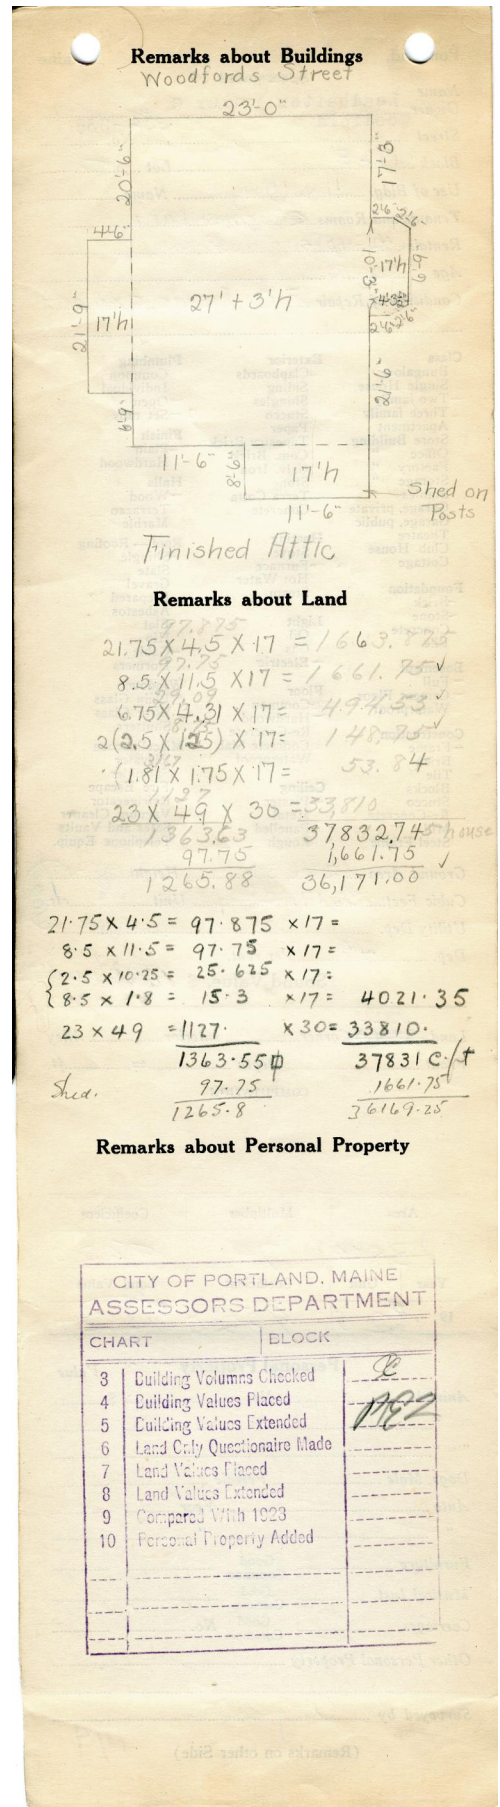 Remarks about Buildings
Woodfords Street
23'-0"
20'-6"
17'-3"
4'-6"
2'-6" 2'-6"
10'-3"
17'h
6'-9"
21'-9"
17'h
27' + 3'h
4'-3"
2'-6" 2'-6"
6'-9"
21'-6"
11'-6"
8'-6"
17'h
11'-6"
Shed on
Posts
Finished Attic
Remarks about Land
97.875
21.75 X 4.5 X 17 = 1663.875
97.75
8.5 X 11.5 X 17 = 1661.75 ✓
29.09
6.75 X 4.31 X 17 = 494.53 ✓
2(2.5 X 1.25) X 17 = 148.75 ✓
3.17
(1.81 X 1.75 X 17 = 53.84
1127
23 X 49 X 30 = 33,810
1363.63 37,832.745 house
97.75 1,661.75 ✓
1265.88 36,171.00
21.75 x 4.5 = 97.875 x 17 =
8.5 x 11.5 = 97.75 x 17 =
{2.5 x 10.25 = 25.625 x 17 =
{8.5 x 1.8 = 15.3 x 17 = 4021.35
23 x 49 = 1127. x 30 = 33810.
1363.55 ф 37831 c./ft
Shed. 97.75 1661.75
1265.8 36169.25
Remarks about Personal Property
CITY OF PORTLAND, MAINE
ASSESSORS DEPARTMENT
CHART BLOCK
3 Building Volumns Checked
4 Building Values Placed
5 Building Values Extended
6 Land Only Questionaire Made
7 Land Values Placed
8 Land Values Extended
9 Compared With 1923
10 Personal Property Added